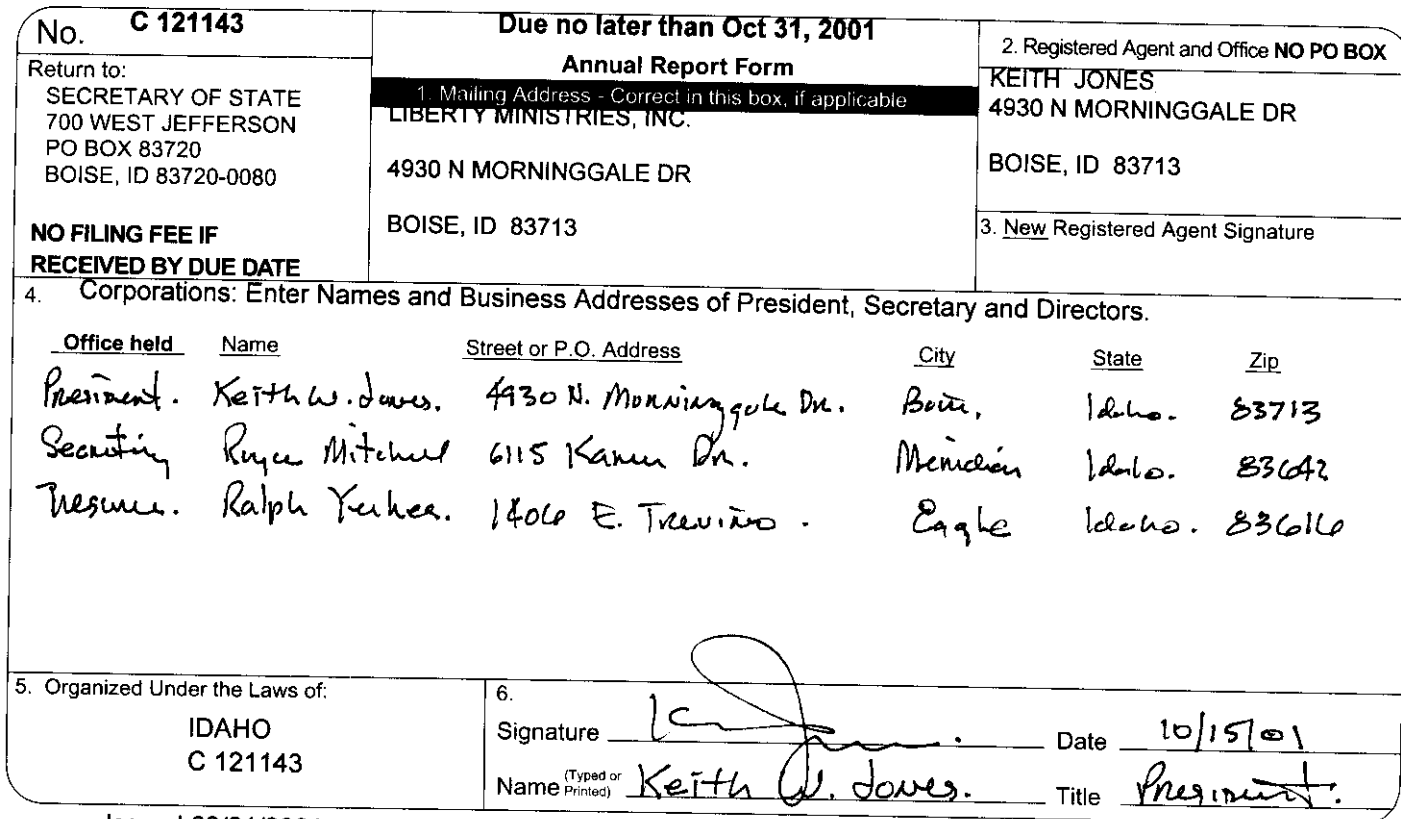 No. C 121143
Return to:
SECRETARY OF STATE
700 WEST JEFFERSON
PO BOX 83720
BOISE, ID 83720-0080
NO FILING FEE IF
RECEIVED BY DUE DATE
Due no later than Oct 31, 2001
Annual Report Form
1. Mailing Address - Correct in this box, if applicable
LIBERTY MINISTRIES, INC.
4930 N MORNINGGALE DR
BOISE, ID 83713
2. Registered Agent and Office NO PO BOX
KEITH JONES
4930 N MORNINGGALE DR
BOISE, ID 83713
3. New Registered Agent Signature
4. Corporations: Enter Names and Business Addresses of President, Secretary and Directors.
Office held Name Street or P.O. Address City State Zip
President. Keith W. Jones. 4930 N. Morninggale Dr. Boise, Idaho. 83713
Secretary Royce Mitchell 6115 Dr. Meridian Idaho. 83642
Treasurer. Ralph 1406 E. Treviño. Eagle Idaho. 83616
5. Organized Under the Laws of:
IDAHO
C 121143
6.
Signature Date 10/15/01
Name (Typed or Printed) Keith W. Jones. Title President.